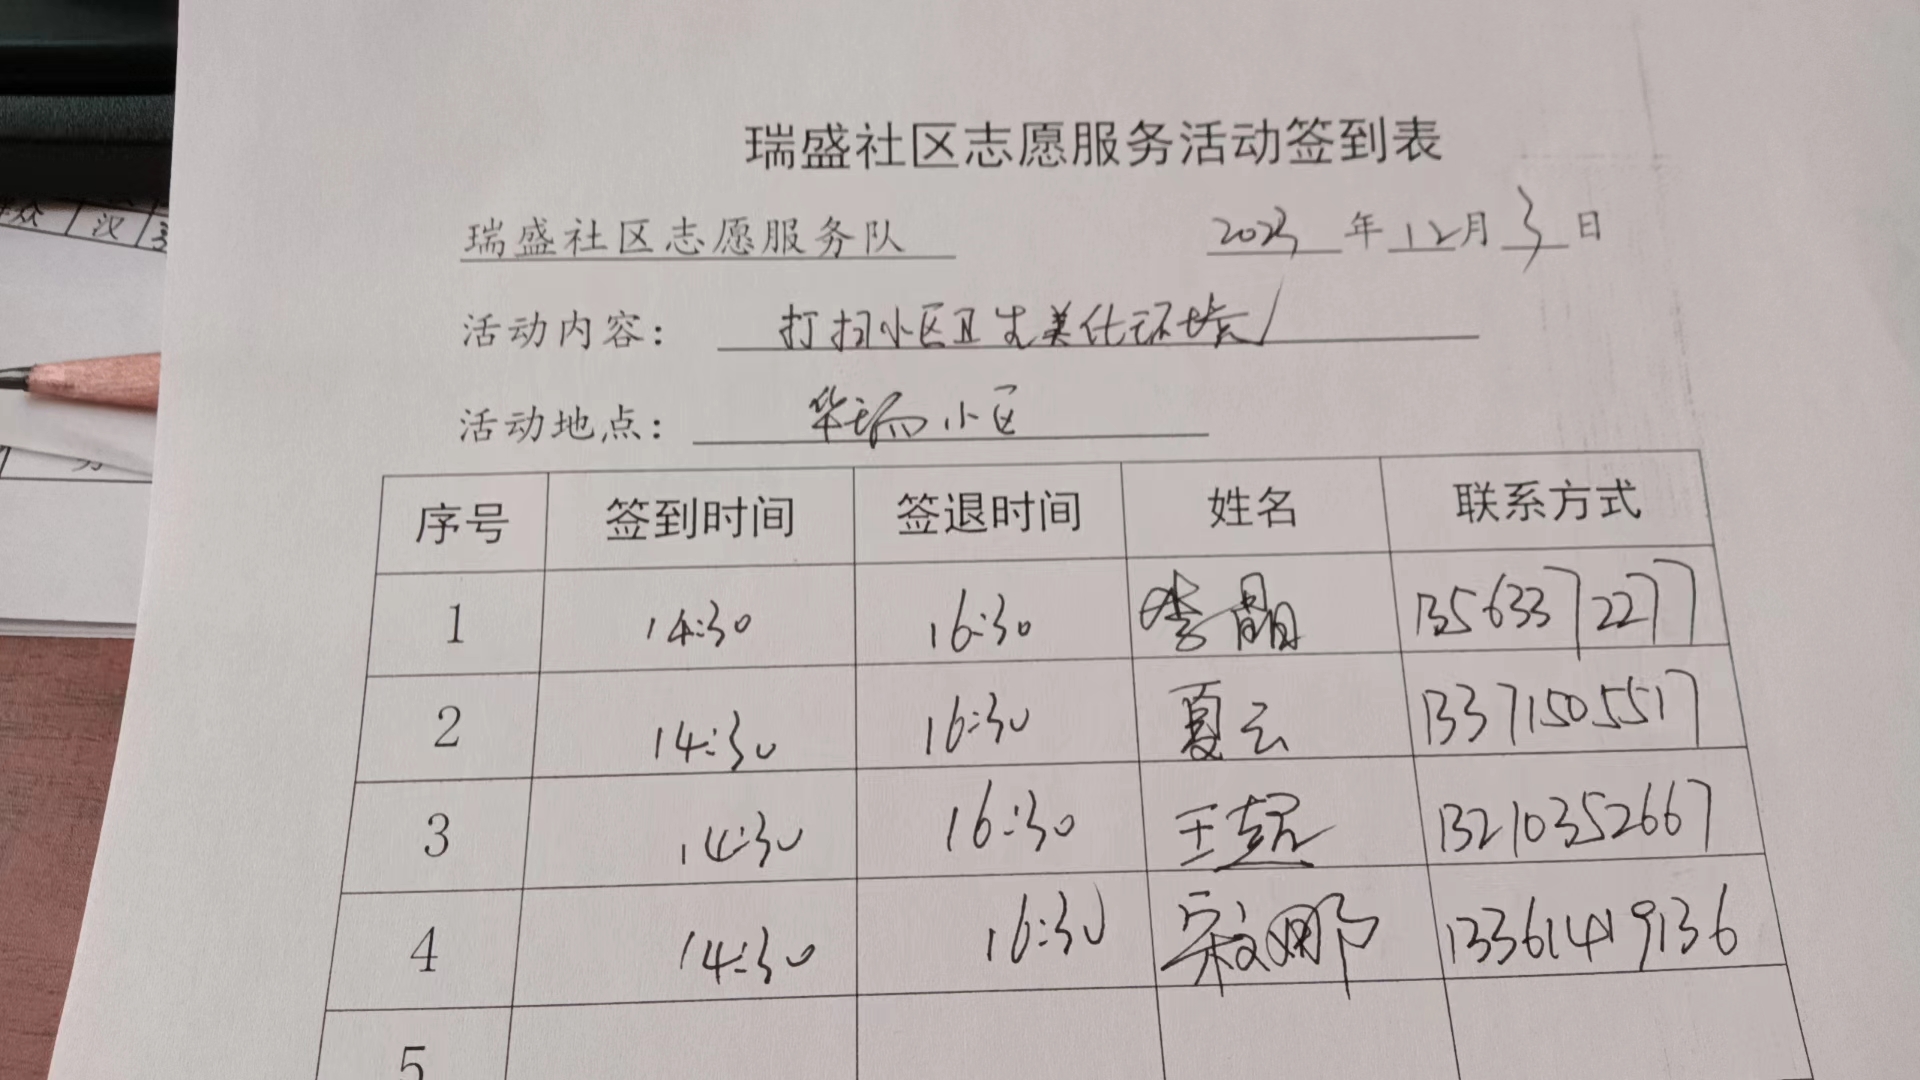 瑞盛社区志愿服务活动签到表
瑞盛社区志愿服务队 2023年12月3日
活动内容: 打扫小区卫生美化环境
活动地点: 华瑞小区
序号 签到时间 签退时间 姓名 联系方式
1 14:30 16:30 李 13563372277
2 14:30 16:30 夏云 13371505517
3 14:30 16:30 王 13210352667
4 14:30 16:30 宋 13361419136
5
群众 汉